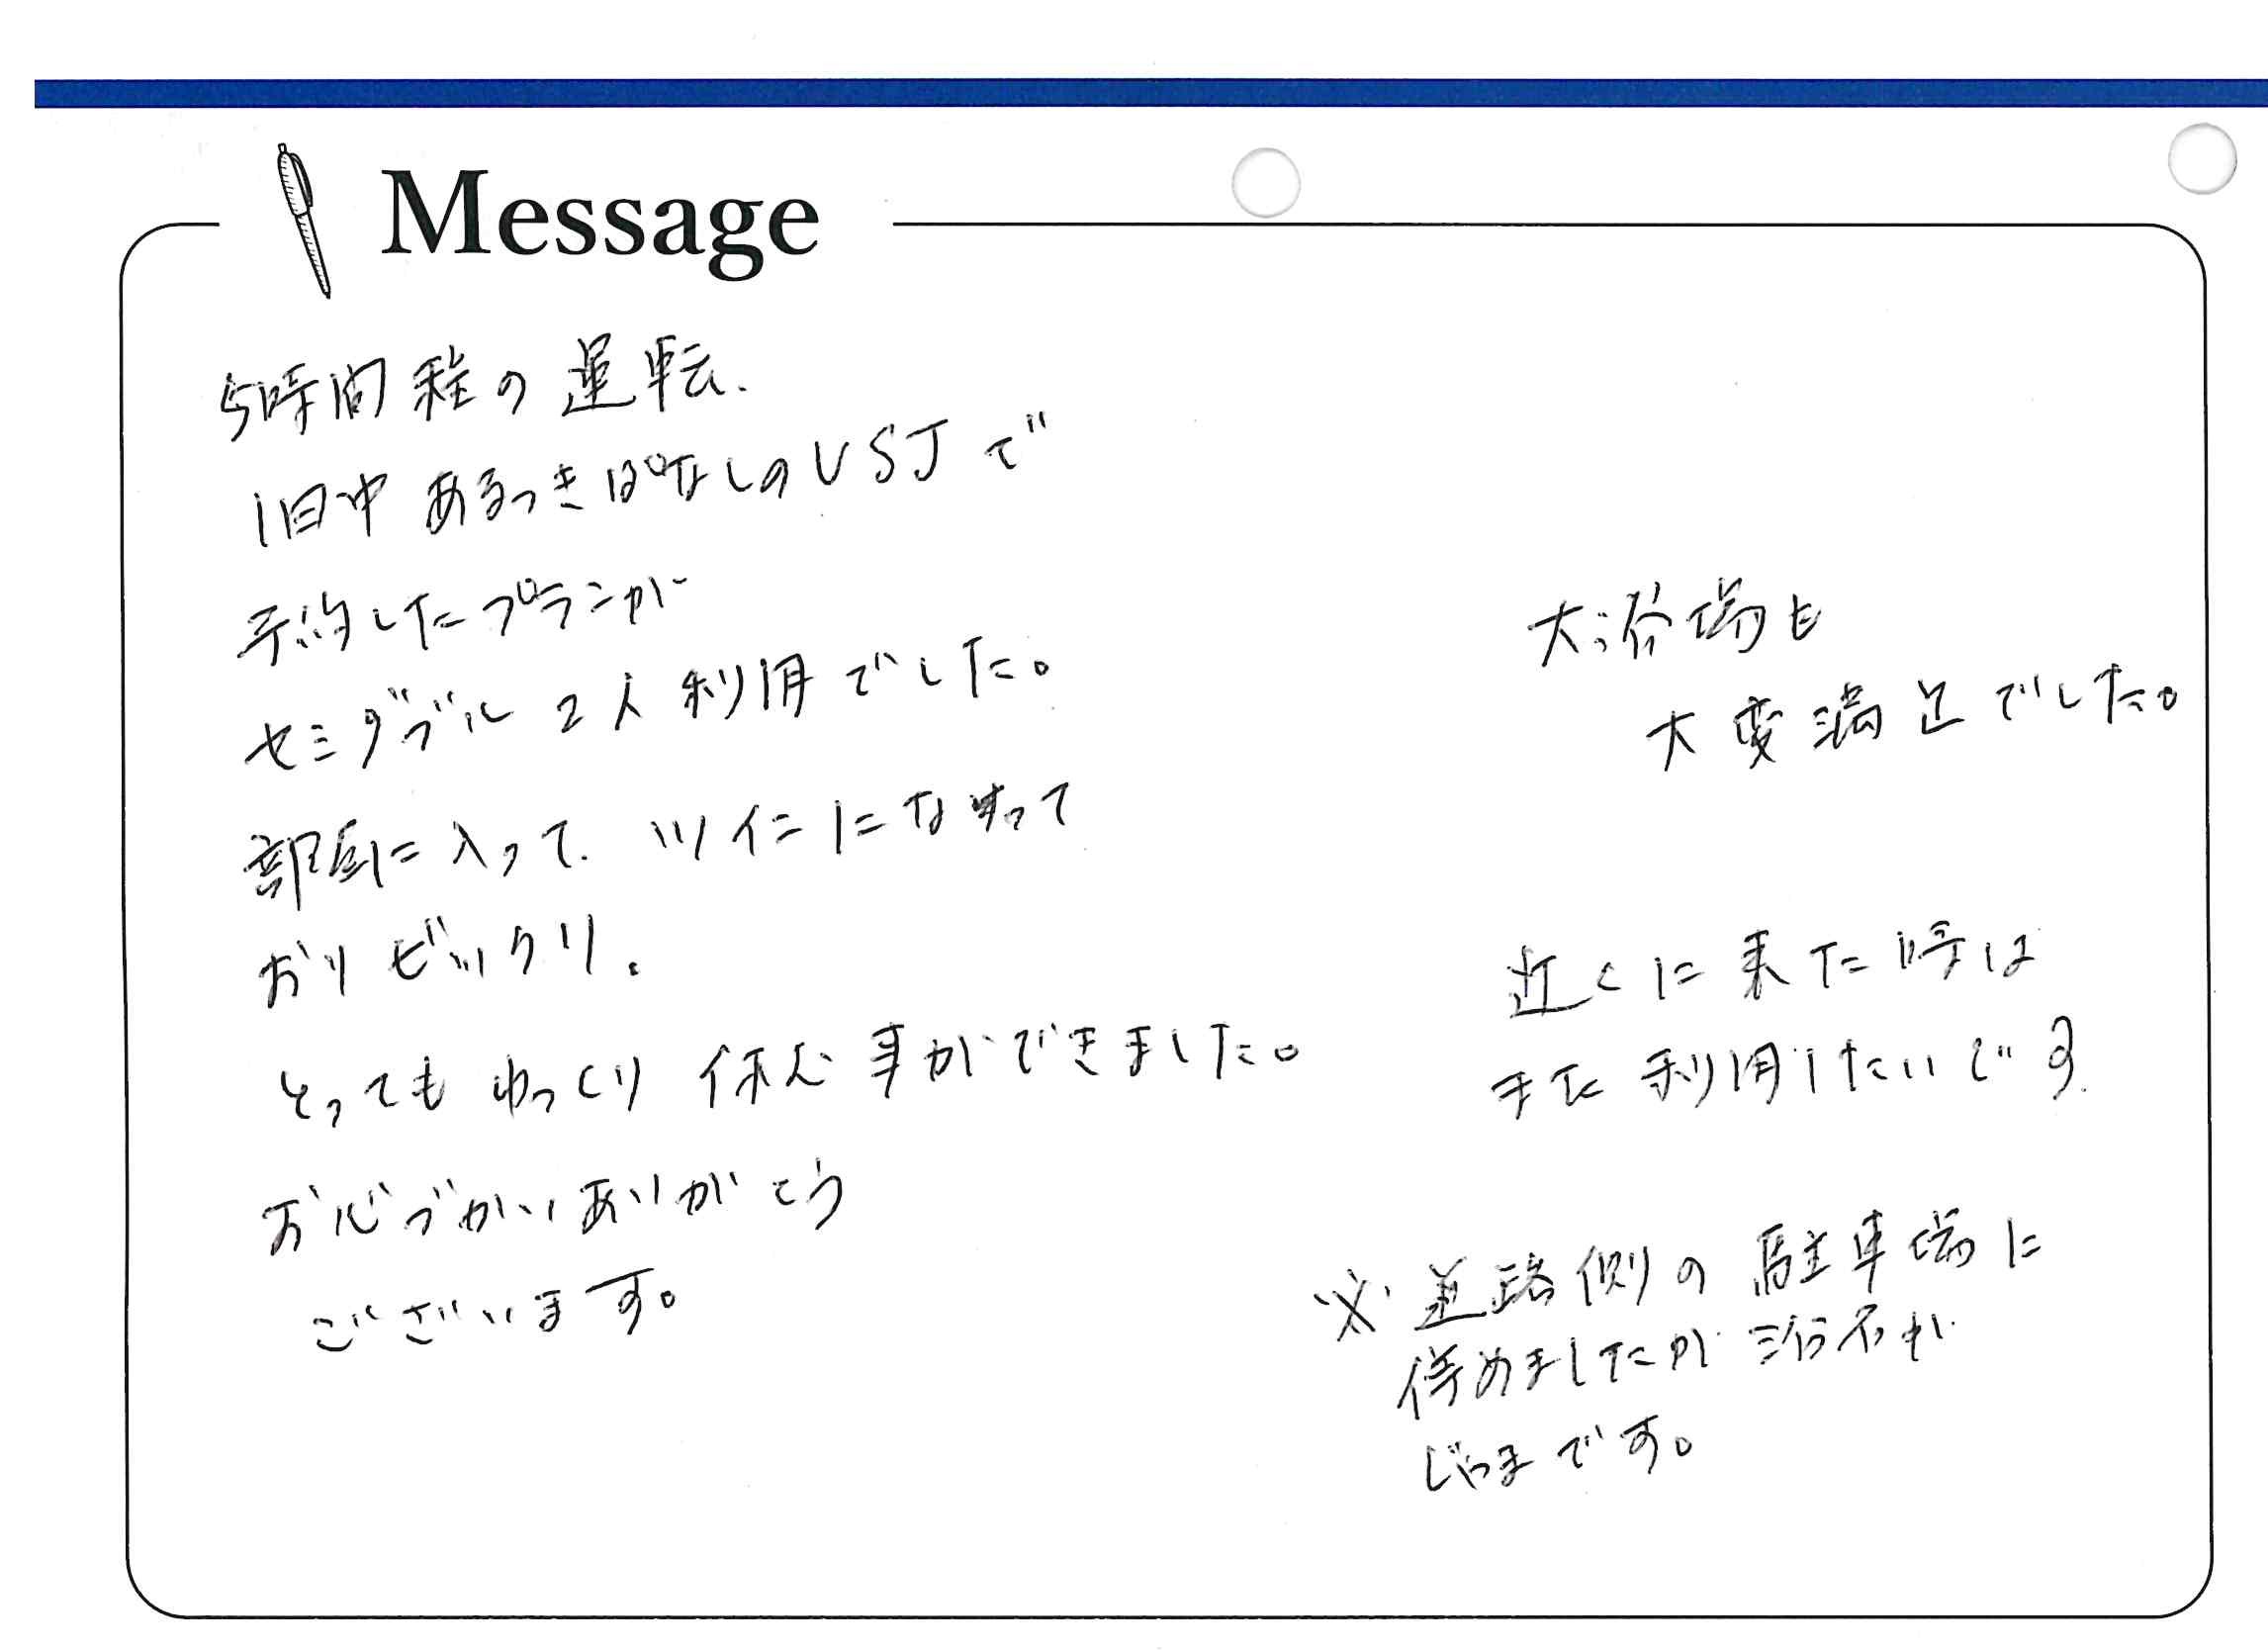 Message
5時間程の運転、
1日中あるっきぱなしのUSJで
予約したプランが
セミダブル2人利用でした。
部屋に入って、ツインになって
おりビックリ。
とってもゆっくり休む事ができました。
お心づかいありがとう
ございます。
大浴場も
大変満足でした。
近くに来た時は
また利用したいです
※道路側の駐車場に
停めましたが
じゃまです。